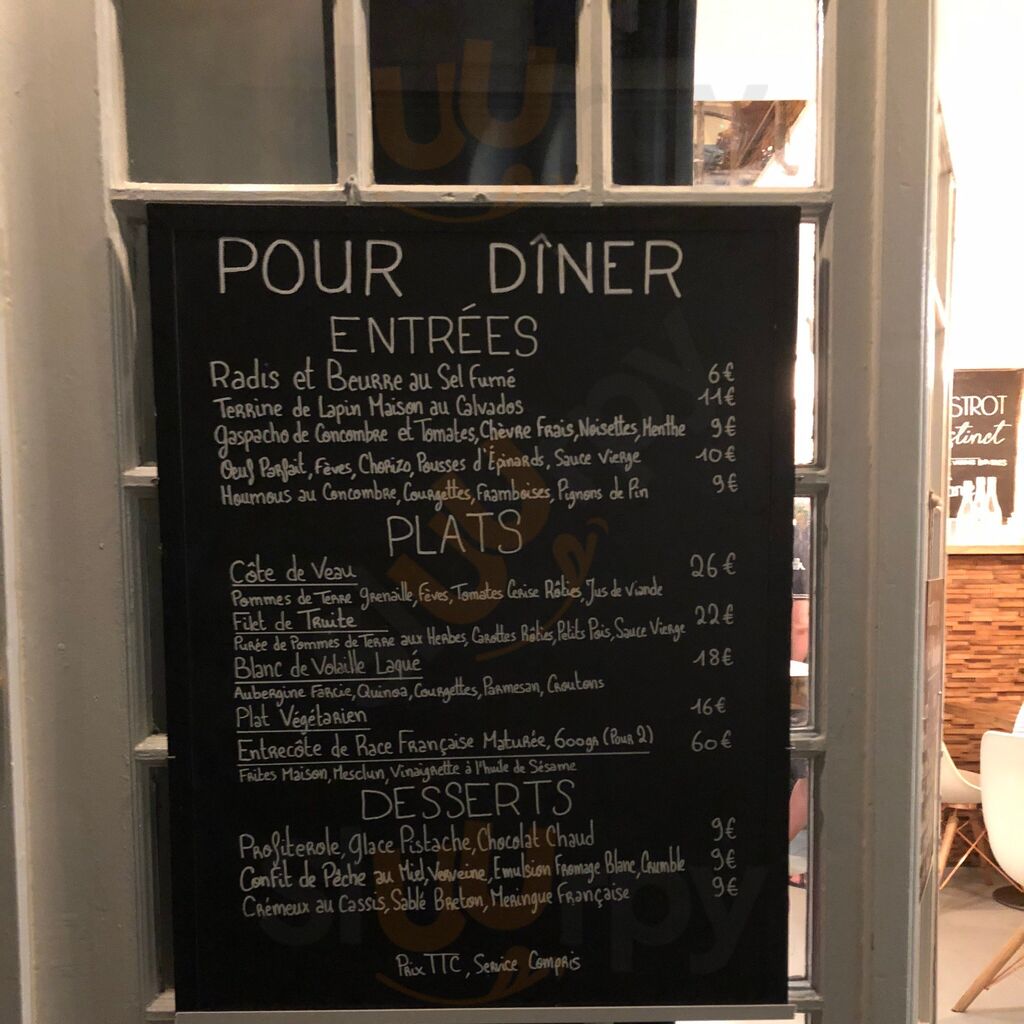 POUR DÎNER
ENTRÉES
Radis et Beurre au Sel Fumé 6€
Terrine de Lapin Maison au Calvados 11€
Gaspacho de Concombre et Tomates, Chèvre Frais, Noisettes, Menthe 9€
Oeuf Parfait, Fèves, Chorizo, Pousses d'Épinards, Sauce Vierge 10€
Houmous au Concombre, Courgettes, Framboises, Pignons de Pin 9€
PLATS
Côte de Veau 26€
Pommes de Terre Grenaille, Fèves, Tomates Cerise Rôties, Jus de Viande
Filet de Truite 22€
Purée de Pommes de Terre aux Herbes, Carottes Rôties, Petits Pois, Sauce Vierge
Blanc de Volaille Laqué 18€
Aubergine Farcie, Quinoa, Courgettes, Parmesan, Croutons
Plat Végétarien 16€
Entrecôte de Race Française Maturée, 600gr (Pour 2) 60€
Frites Maison, Mesclun, Vinaigrette à l'huile de Sésame
DESSERTS
Profiterole, Glace Pistache, Chocolat Chaud 9€
Confit de Pêche au Miel, Verveine, Emulsion Fromage Blanc, Crumble 9€
Crémeux au Cassis, Sablé Breton, Meringue Française 9€
Prix TTC, Service Compris
STROT
stinct